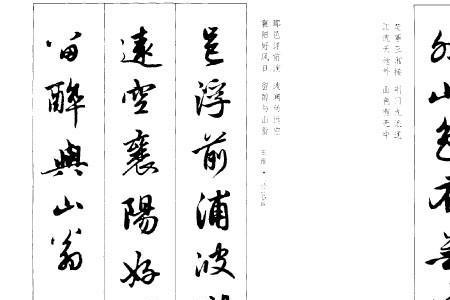 外山色有
楚塞三湘接 荆门九派通
江流天地外 山色有无中
郡邑浮前浦 波澜动远空
襄阳好风日 留醉与山翁
邑浮前浦波
遠空襄陽好
留醉與山翁